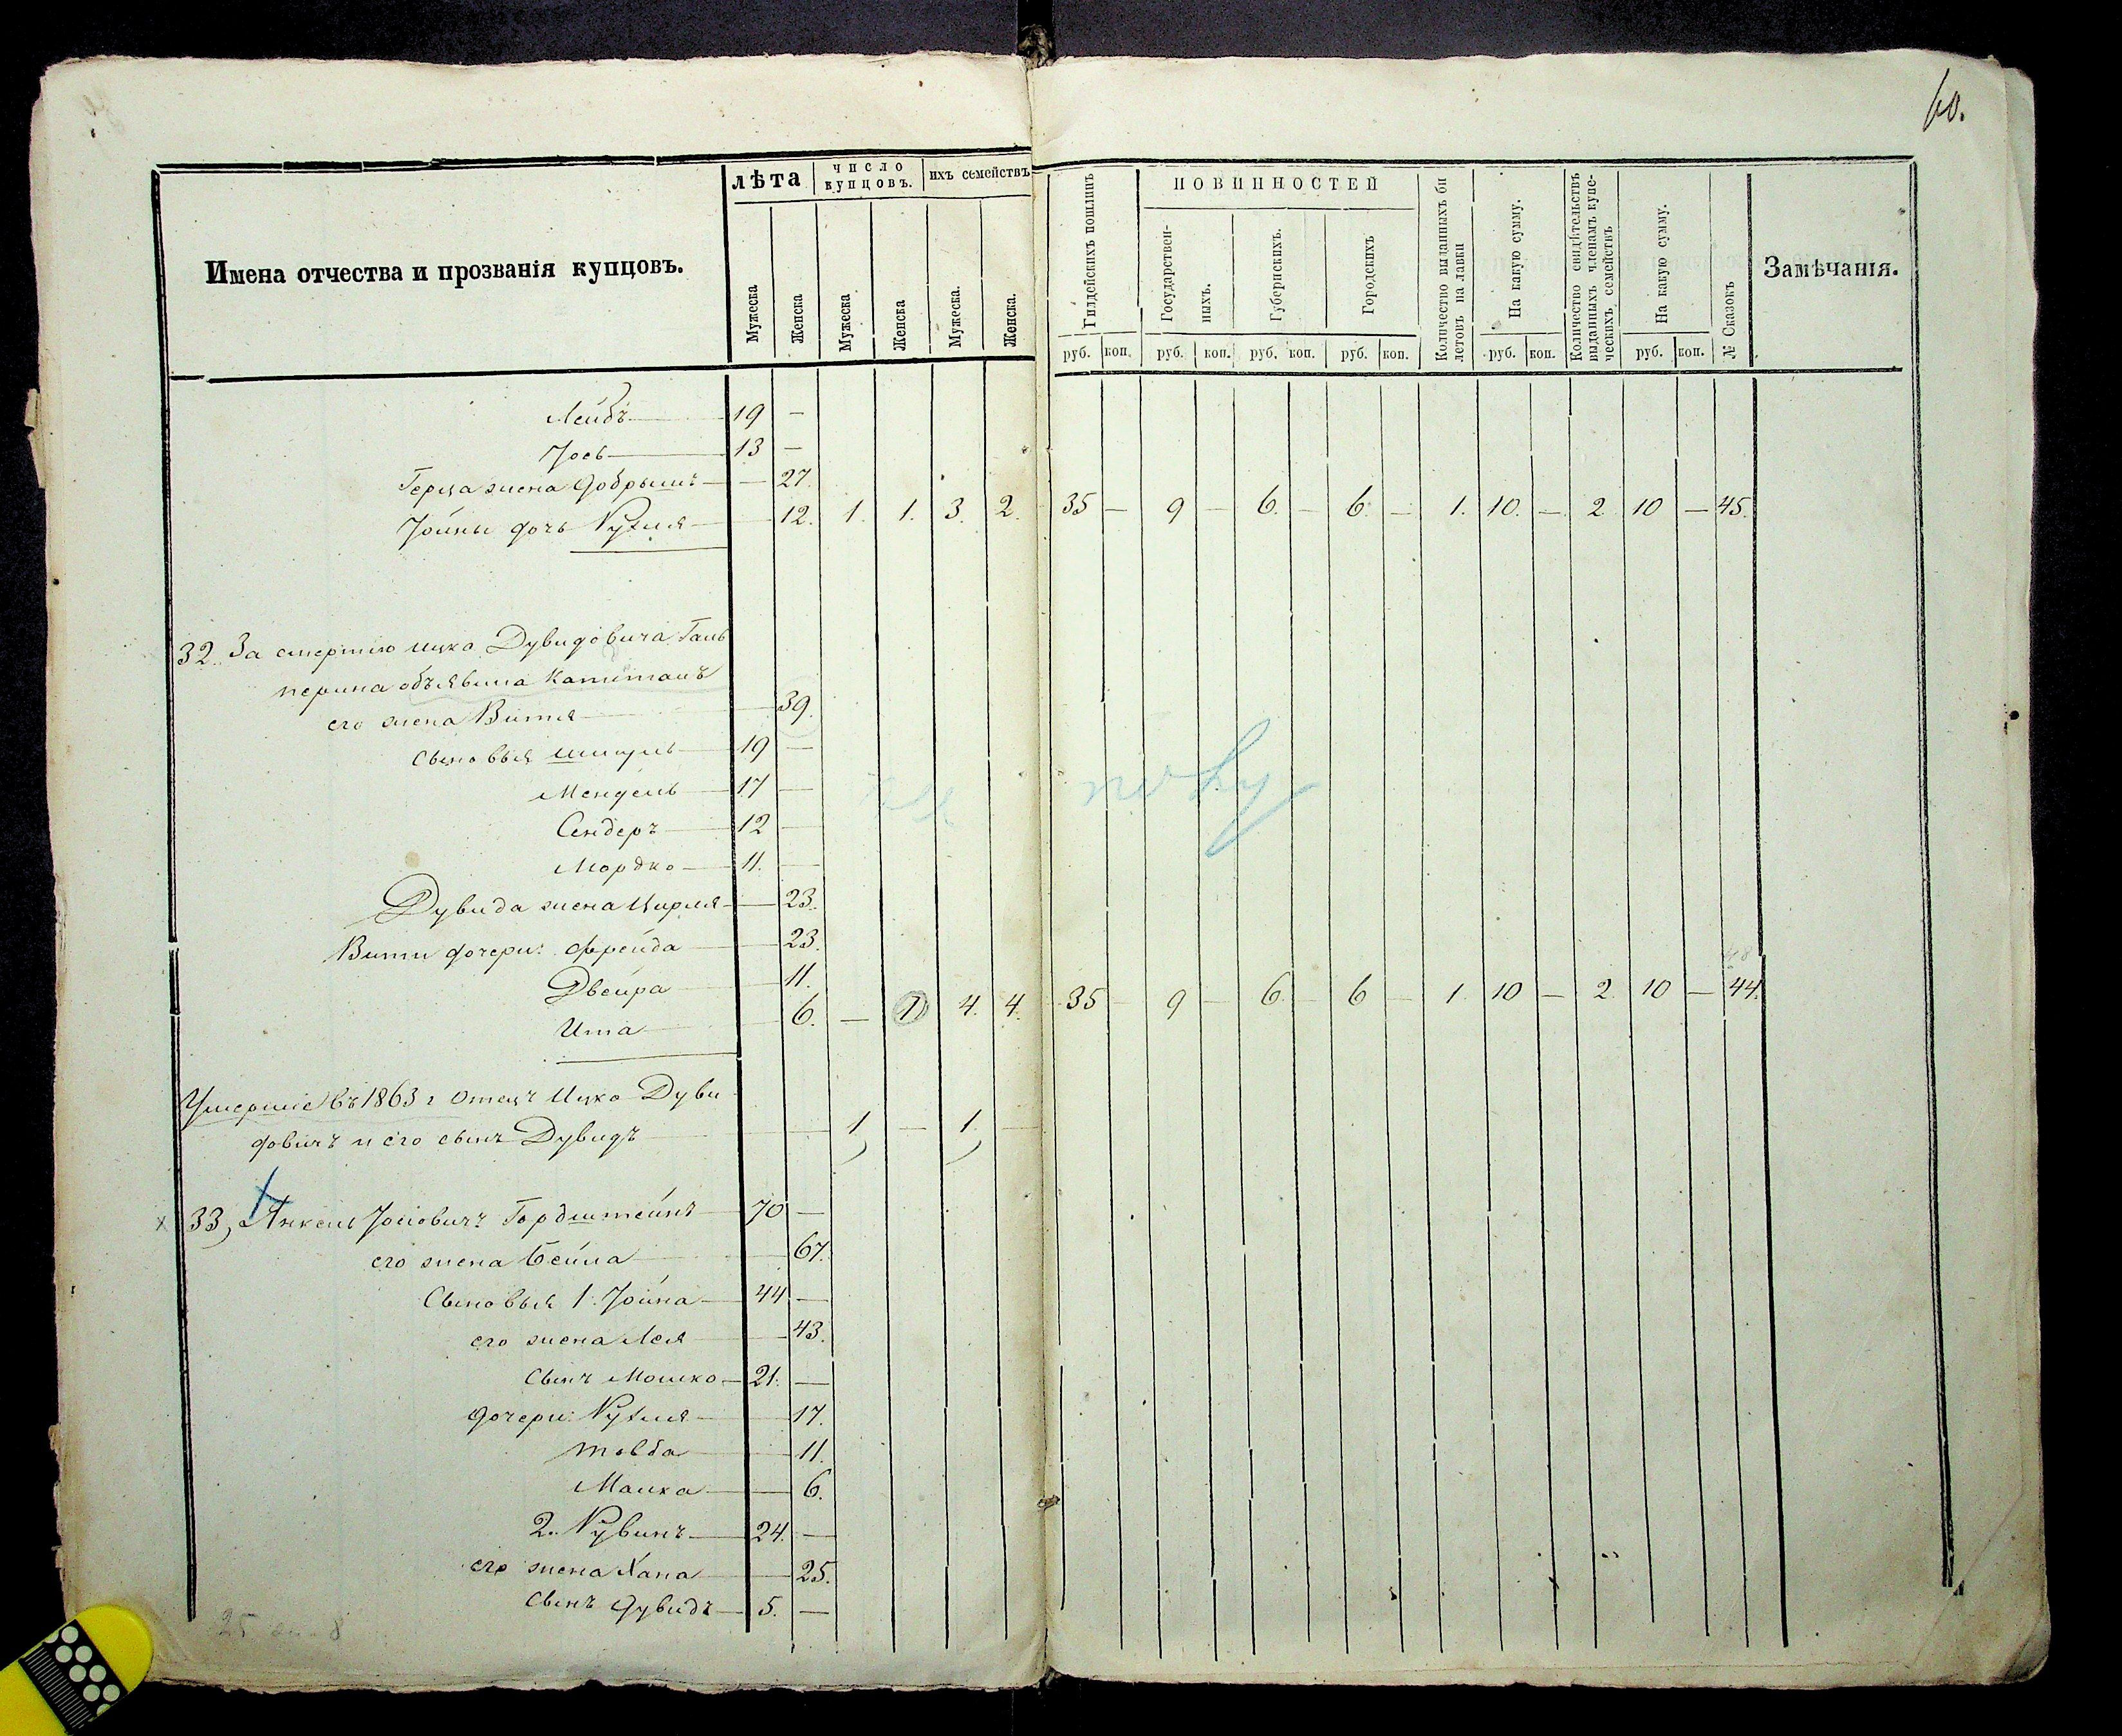 60.
Имена отчества и прозванія купцовъ.
лѣта
число купцовъ.
ихъ семействъ
Мужеска
Женска
Мужеска
Женска
Мужеска.
Женска.
Гилдейскихъ пошлинъ
ПОВИННОСТЕЙ
Государствен-
ныхъ.
Губернскихъ.
Городскихъ
Количество выданныхъ би
летовъ на лавки
На какую сумму.
Количество свидѣтельствъ
выданныхъ членамъ купе-
ческихъ семействъ
На какую сумму.
№ Сказокъ
Замѣчанія.
руб. коп. руб. коп. руб. коп. руб. коп. руб. коп. руб. коп.
Лейбъ 19 —
Іось 13 —
Герца жена Добрышъ — 27.
Іойны дочь Рухля — 12. 1. 1. 3. 2. 35 — 9 — 6. — 6. — 1. 10. — 2 10 — 45.
32. За смертію Ицка Дувидовича Галь
перина объявила капиталъ
его жена Витя — 39.
сыновья Шмуль 19 —
Мендель 17 —
Сендеръ 12 —
Мордко 11. —
Дувида жена Цирля — 23.
Вити дочери: Фрейда — 23.
Двейра — 11.
Ита — 6. — 1 4. 4. 35 — 9 — 6. — 6 — 1 10 — 2. 10 — 44.
Умершіе въ 1863 г отецъ Ицко Дуви
довичъ и его сынъ Дувидъ — — 1 — 1. —
33, Анкель Іосіовичъ Гордштейнъ 70 —
его жена Бейла — 67.
Сыновья 1. Іойна 44 —
его жена Лея — 43.
сынъ Мошко 21. —
дочери: Рухля — 17.
Товба — 11.
Малка — 6.
2. Рувинъ 24. —
его жена Хана — 25.
сынъ Дувидъ 5. —